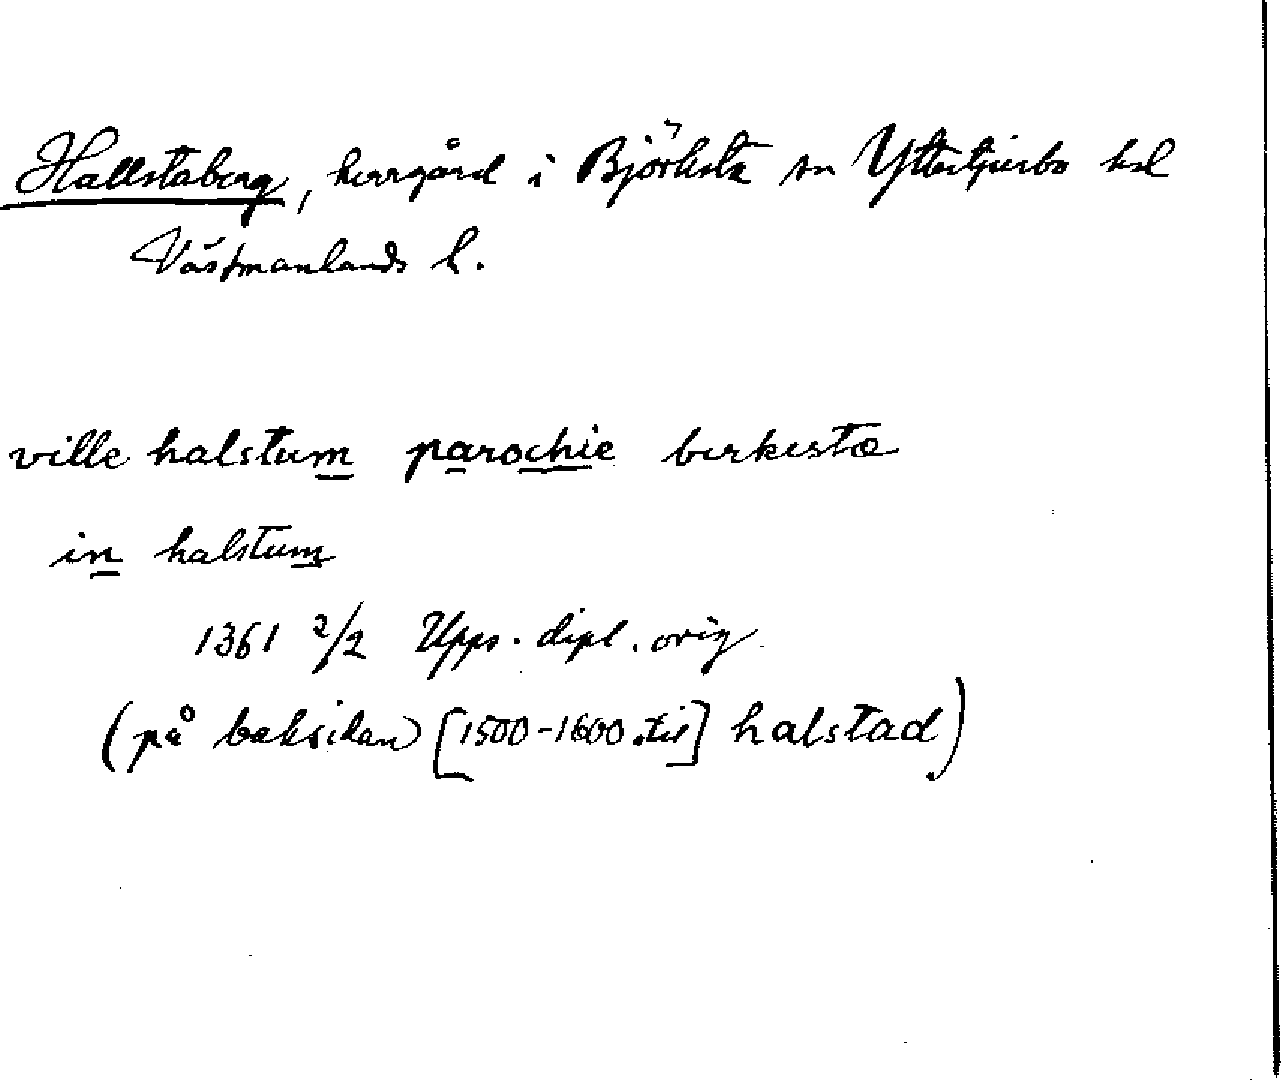 Hallstaberg, herrgård i Björksta sn Yttertjurbo hd
Västmanlands l.
ville halstum parochie birkistæ
in halstum
1361 2/2 Upps. dipl. orig
(på baksidan [1500-1600.tal] halstad)